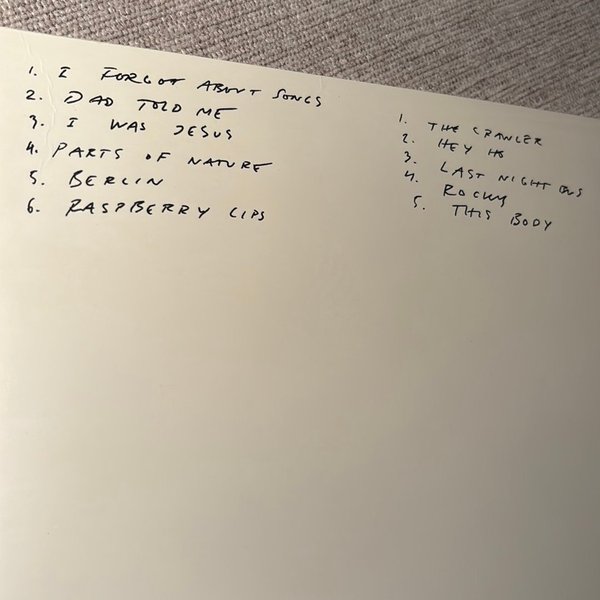 1. I FORGOT ABOUT SONGS
2. DAD TOLD ME
3. I WAS JESUS
4. PARTS OF NATURE
5. BERLIN
6. RASPBERRY LIPS
1. THE CRAWLER
2. HEY
3. LAST NIGHT
4. ROCKY
5. THIS BODY